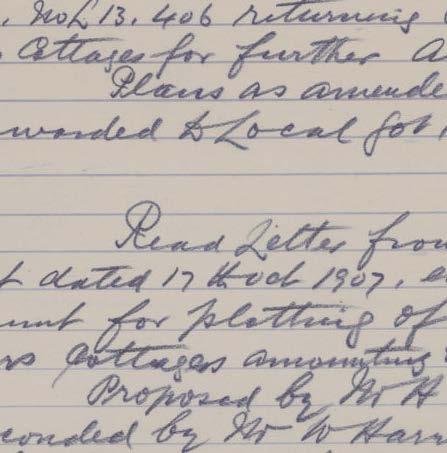 . No L 13.406 returning
Cottages for further A
Plans as amende
warded to Local Gov
Read Letter from
t dated 17th Oct 1907, e
unt for plotting of
rs Cottages amounting
Proposed by Mr H
conded by Mr W Harr